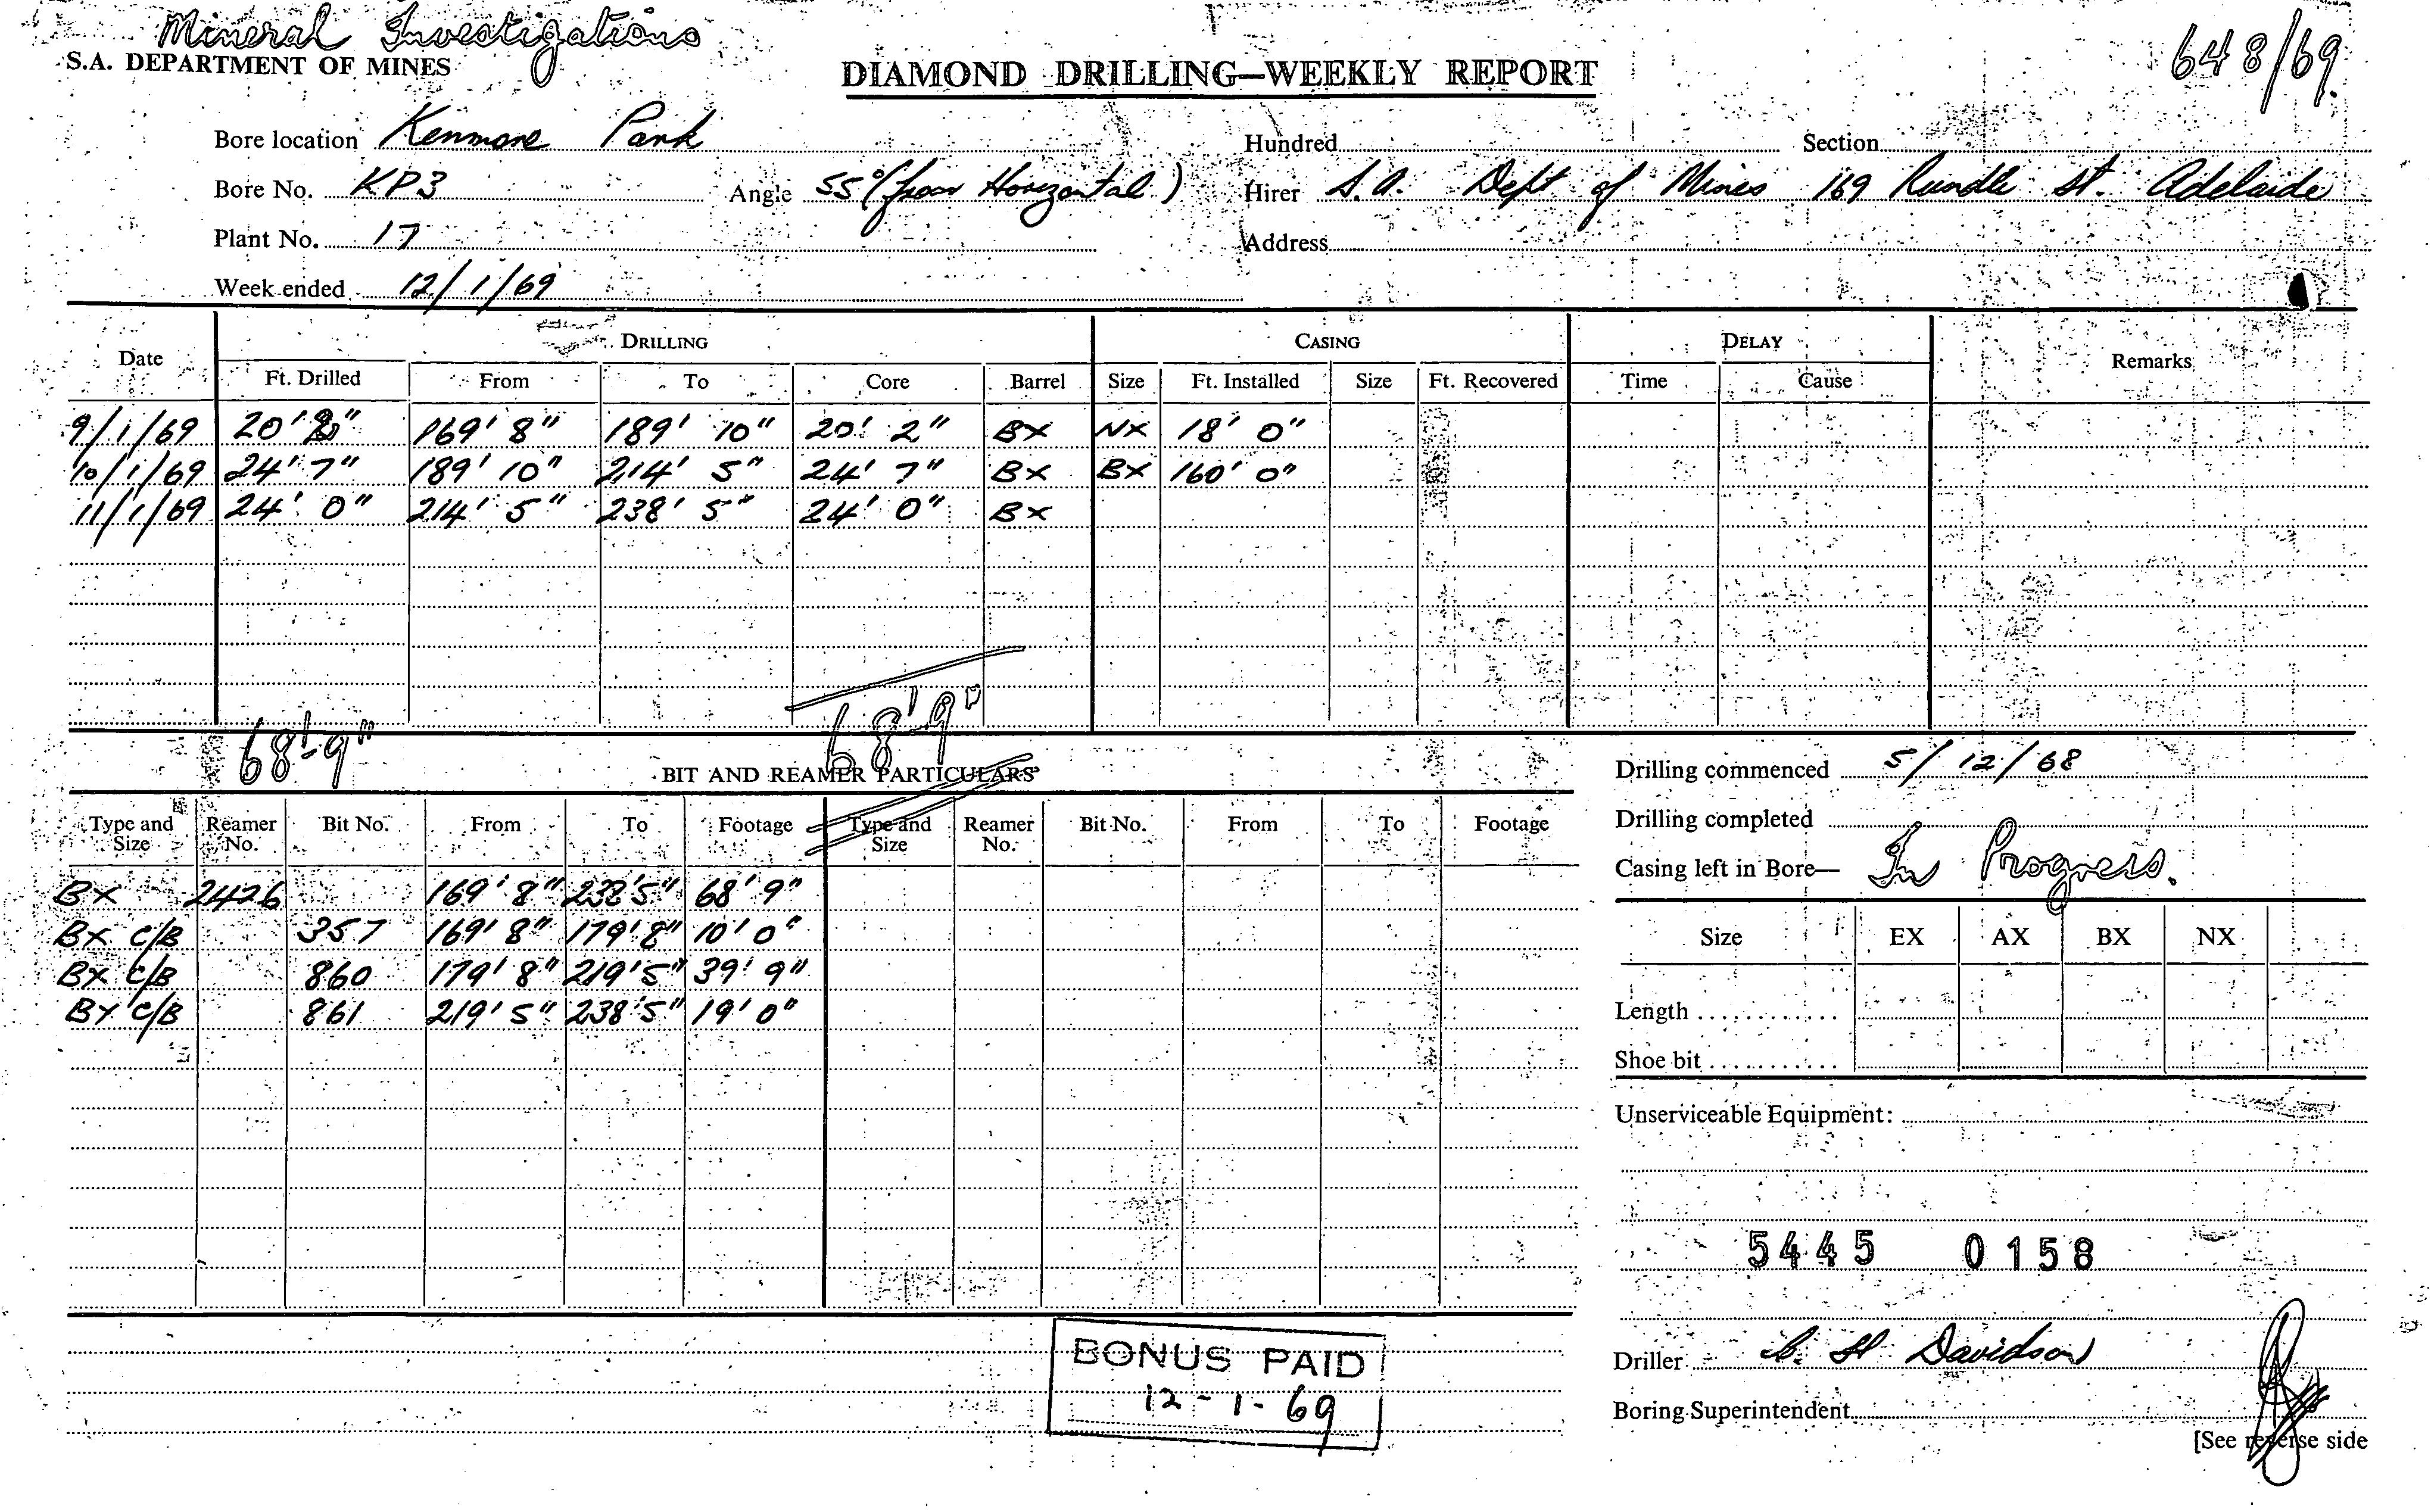 Mineral Investigations
648/69.
S.A. DEPARTMENT OF MINES
DIAMOND DRILLING—WEEKLY REPORT
Bore location Kenmore Park Hundred Section
Bore No. KP3 Angle 55° (from Horizontal) Hirer S.A. Dept of Mines 169 Rundle St. Adelaide
Plant No. 17 Address
Week ended 12/1/69
Date DRILLING CASING DELAY Remarks
Ft. Drilled From To Core Barrel Size Ft. Installed Size Ft. Recovered Time Cause
9/1/69 20' 2" 169' 8" 189' 10" 20' 2" BX NX 18' 0"
10/1/69 24' 7" 189' 10" 214' 5" 24' 7" BX BX 160' 0"
11/1/69 24' 0" 214' 5" 238' 5" 24' 0" BX
68'-9" 68'9"
BIT AND REAMER PARTICULARS
Type and Size Reamer No. Bit No. From To Footage Type and Size Reamer No. Bit No. From To Footage
BX 2426 169' 8" 238'5" 68' 9"
BX C/B 357 169' 8" 179'8" 10' 0"
BX C/B 860 179' 8" 219'5" 39' 9"
BX C/B 861 219' 5" 238'5" 19' 0"
Drilling commenced 5/12/68
Drilling completed
Casing left in Bore— In Progress.
Size EX AX BX NX
Length ............
Shoe bit ...........
Unserviceable Equipment:
5445 0158
BONUS PAID
12-1-69
Driller Davidson
Boring Superintendent
[See reverse side